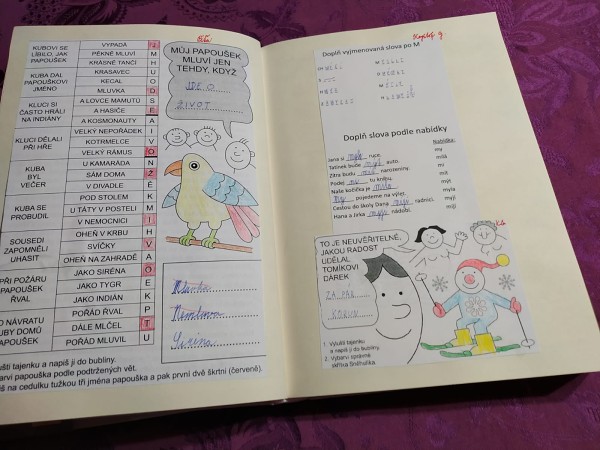 KUBOVI SE
LÍBILO, JAK
PAPOUŠEK
VYPADÁ
PĚKNĚ MLUVÍ M
KRÁSNĚ TANČÍ H
KUBA DAL
PAPOUŠKOVI
JMÉNO
KRASAVEC U
KECAL O
MLUVKA D
KLUCI SI
ČASTO HRÁLI
NA INDIÁNY
A LOVCE MAMUTŮ S
A HASIČE E
A KOVBOJE A
KLUCI DĚLALI
PŘI HŘE
VELKÝ NEPOŘÁDEK I
KOTRMELCE V
VELKÝ RÁMUS O
KUBA
BYL
VEČER
U KAMARÁDA N
SÁM DOMA Ž
V DIVADLE É
KUBA SE
PROBUDIL
POD STOLEM K
U TÁTY V POSTELI M
V NEMOCNICI I
SOUSEDI
ZAPOMNĚLI
UHASIT
OHEŇ V KRBU H
SVÍČKY V
OHEŇ NA ZAHRADĚ A
PŘI POŽÁRU
PAPOUŠEK
ŘVAL
JAKO SIRÉNA O
JAKO TYGR E
JAKO INDIÁN K
O NÁVRATU
UBY DOMŮ
APOUŠEK
POŘÁD ŘVAL P
DÁLE MLČEL T
POŘÁD MLUVIL U
MŮJ PAPOUŠEK
MLUVÍ JEN
TEHDY, KDYŽ
JDE O
ŽIVOT
Mluvka
Siréna
ušti tajenku a napiš ji do bubliny.
barvi papouška podle podtržených vět.
iš na cedulku tužkou tři jména papouška a pak první dvě škrtni (červeně).
Doplň vyjmenovaná slova po M
Doplň slova podle nabídky
Nabídka:
Jana si myla ruce. my
Tatínek bude mýt auto. milá
Zítra budu mít narozeniny. mi
Podej mi tu knipu. mít
Naše kočička je milá. mýt
My pojedeme na výlet. myla
Cestou do školy Dana míjí radnici. myjí
Hana a Jirka myjí nádobí. míjí
TO JE NEUVĚŘITELNÉ,
JAKOU RADOST
UDĚLAL
TOMÍKOVI
DÁREK
ZA PÁR
KORUN
1. Vylušti tajenku
a napiš ji do bubliny.
2. Vybarvi správně
skřítka Sněhulíka.